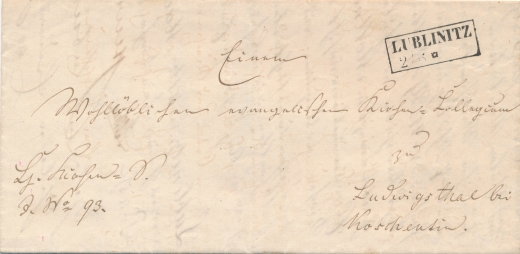 LUBLINITZ
Einem
Wohllöblichen evangelischen Kirchen-Collegium
zu
Ludwigsthal bei
Koschentin.
Kirchen-S.
No 93.